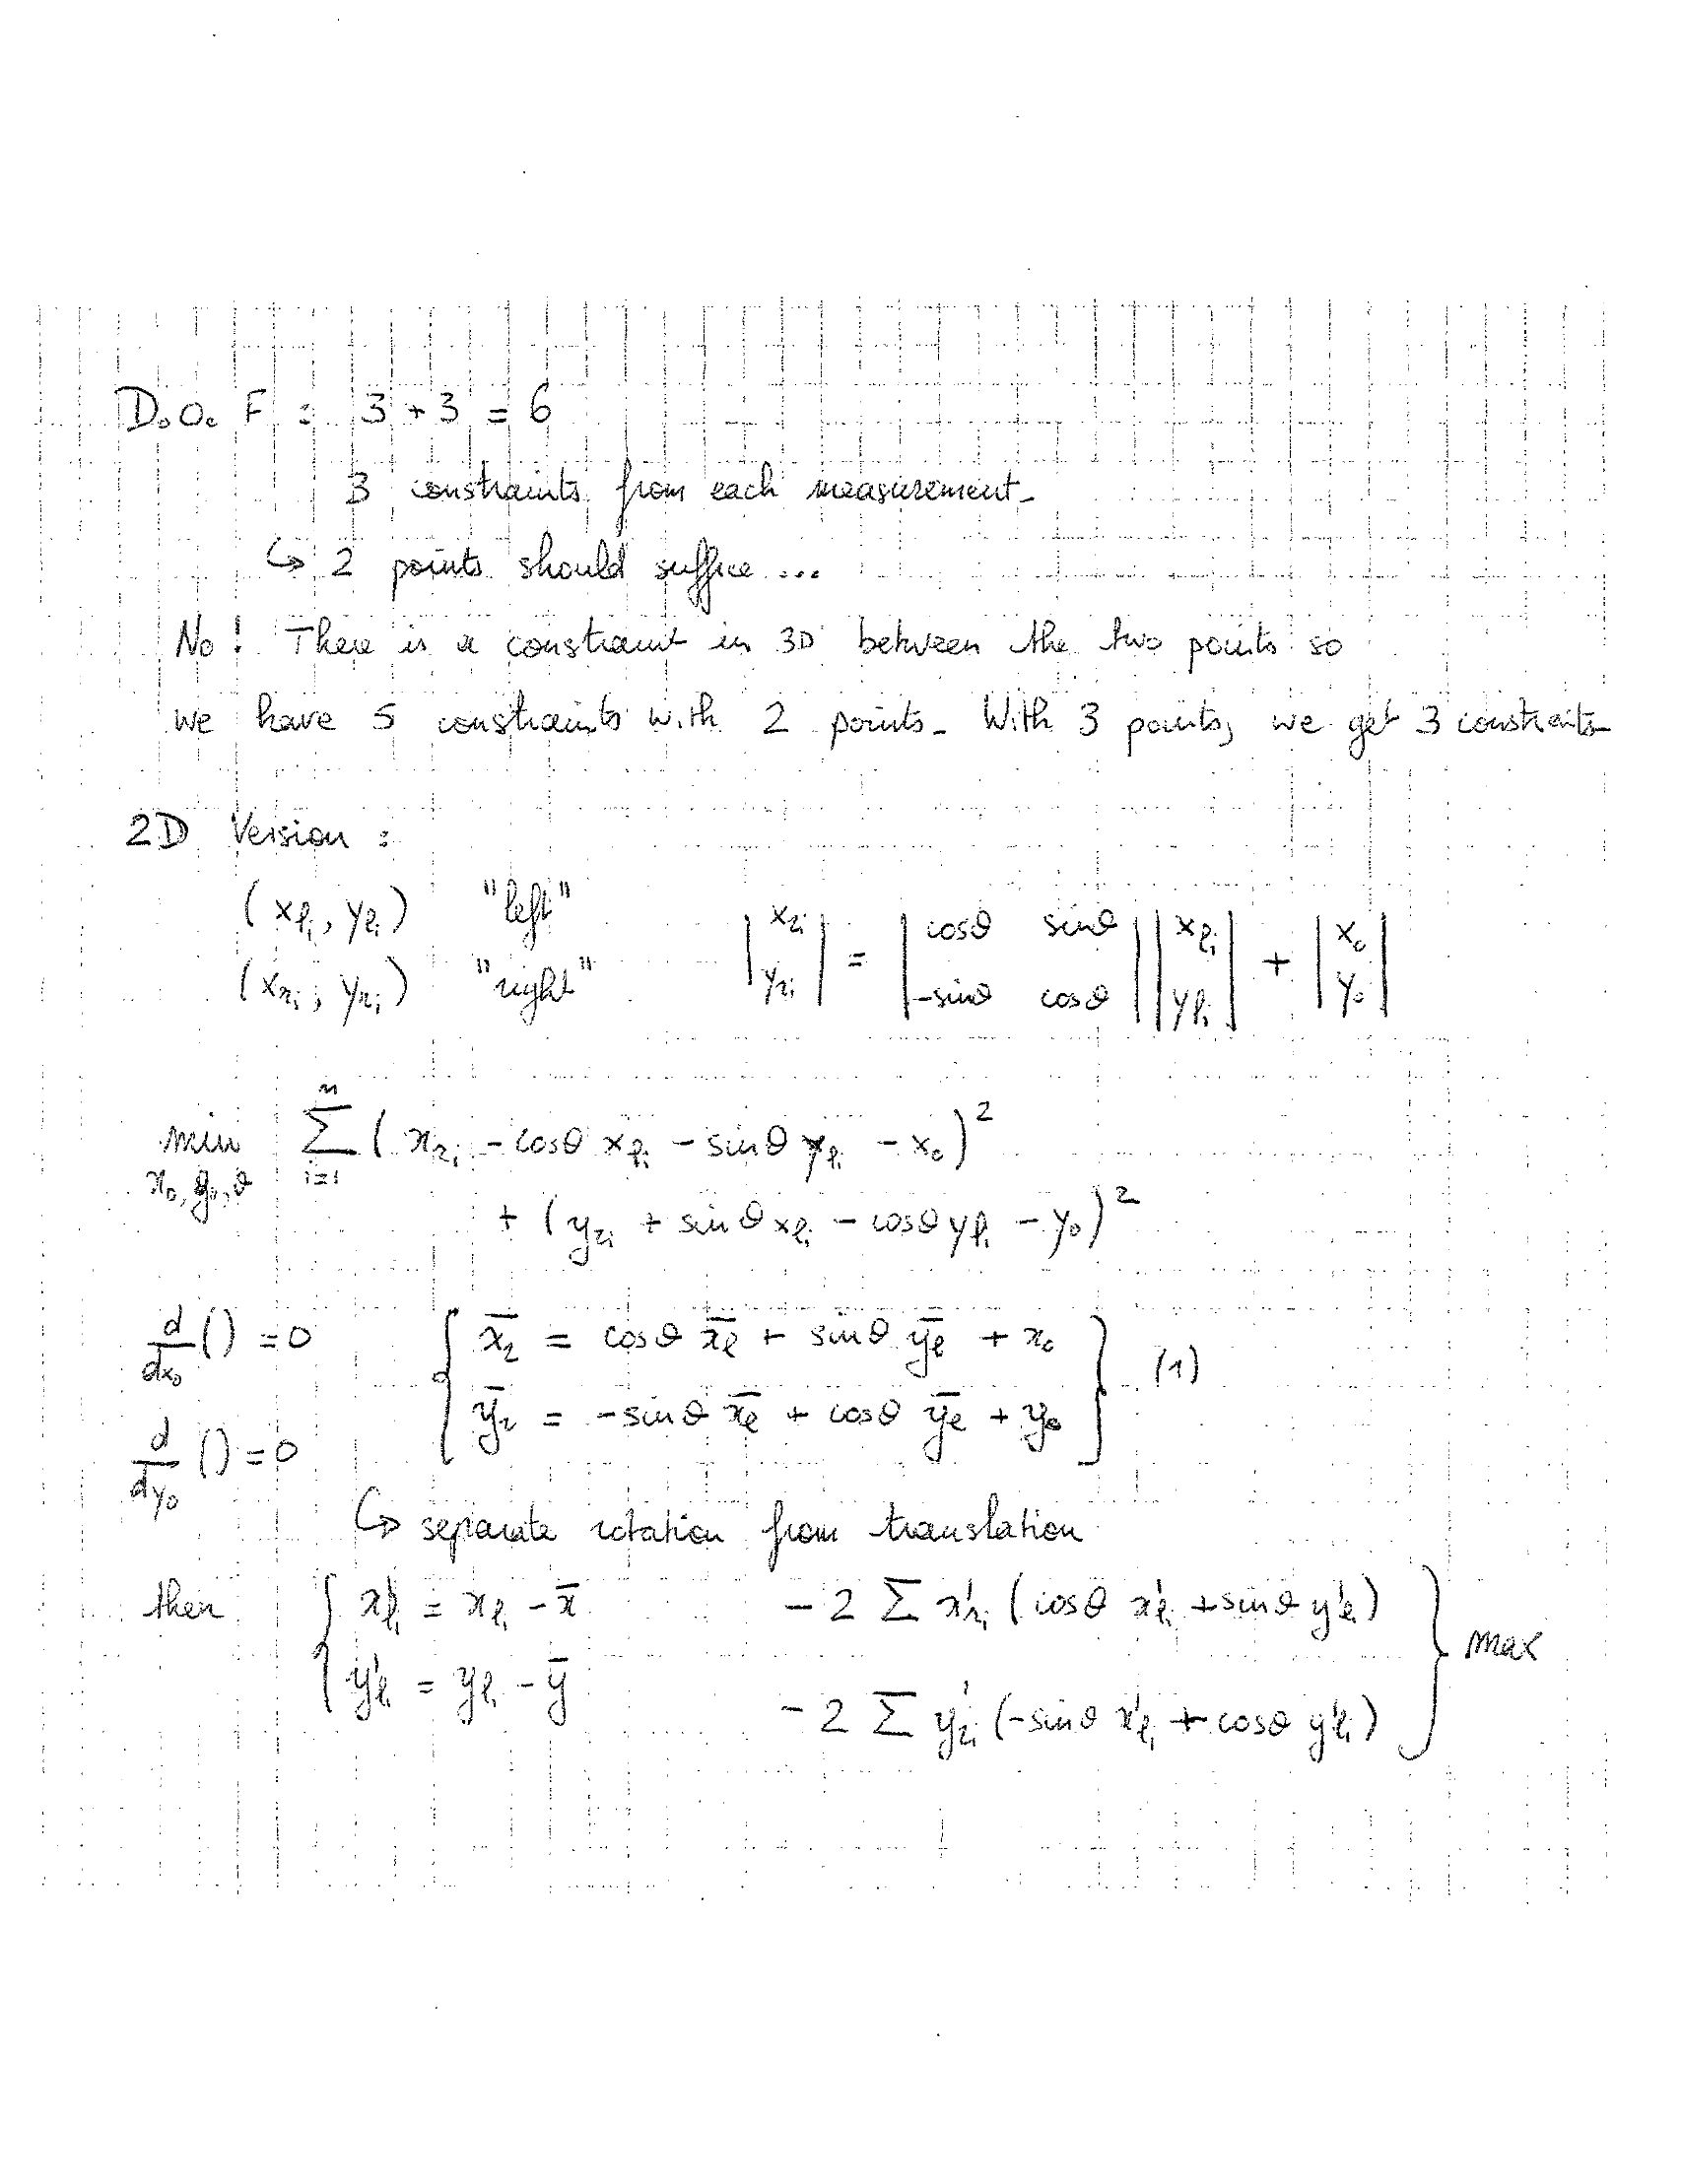 D.O.F = 3+3 = 6
3 constraints from each measurement-
↳ 2 points should suffice ...
No! There is a constraint in 3D between the two points so
we have 5 constraints with 2 points- With 3 points, we get 3 constraints-
2D Version :
(x_{l_i}, y_{l_i}) "left"
(x_{r_i}, y_{r_i}) "right" |x_{r_i} y_{r_i}| = |cosθ sinθ -sinθ cosθ| |x_{l_i} y_{l_i}| + |x_0 y_0|
min_{x_0, y_0, θ} Σ_{i=1}^{n} (x_{r_i} - cosθ x_{l_i} - sinθ y_{l_i} - x_0)^2
+ (y_{r_i} + sinθ x_{l_i} - cosθ y_{l_i} - y_0)^2
d/dx_0 () = 0 { x̄_r = cosθ x̄_l + sinθ ȳ_l + x_0 } (1)
d/dy_0 () = 0 { ȳ_r = -sinθ x̄_l + cosθ ȳ_l + y_0 }
↳ separate rotation from translation
then { x'_{l_i} = x_{l_i} - x̄ - 2 Σ x'_{r_i} (cosθ x'_{l_i} + sinθ y'_{l_i}) } max
{ y'_{l_i} = y_{l_i} - ȳ - 2 Σ y'_{r_i} (-sinθ x'_{l_i} + cosθ y'_{l_i}) }